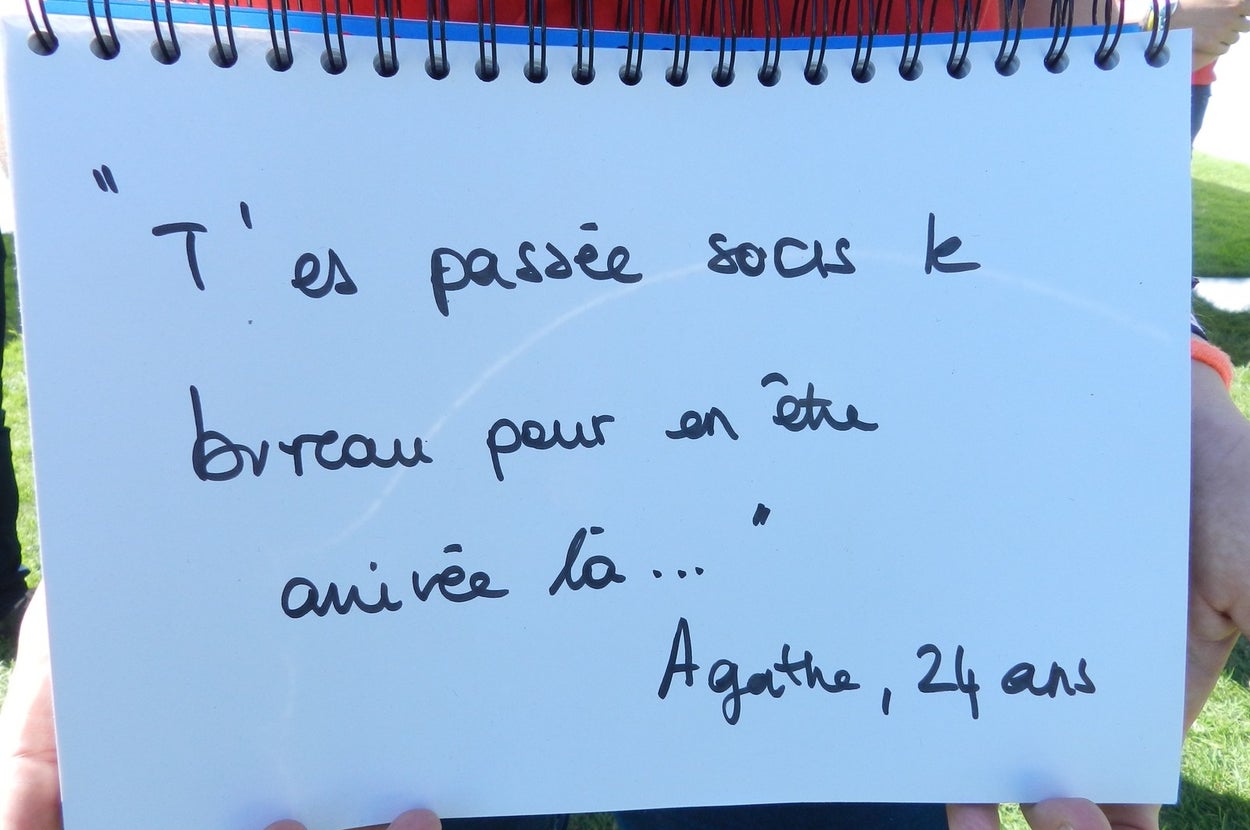 "T'es passée sous le
bureau pour en être
arrivée là..."
Agathe, 24 ans